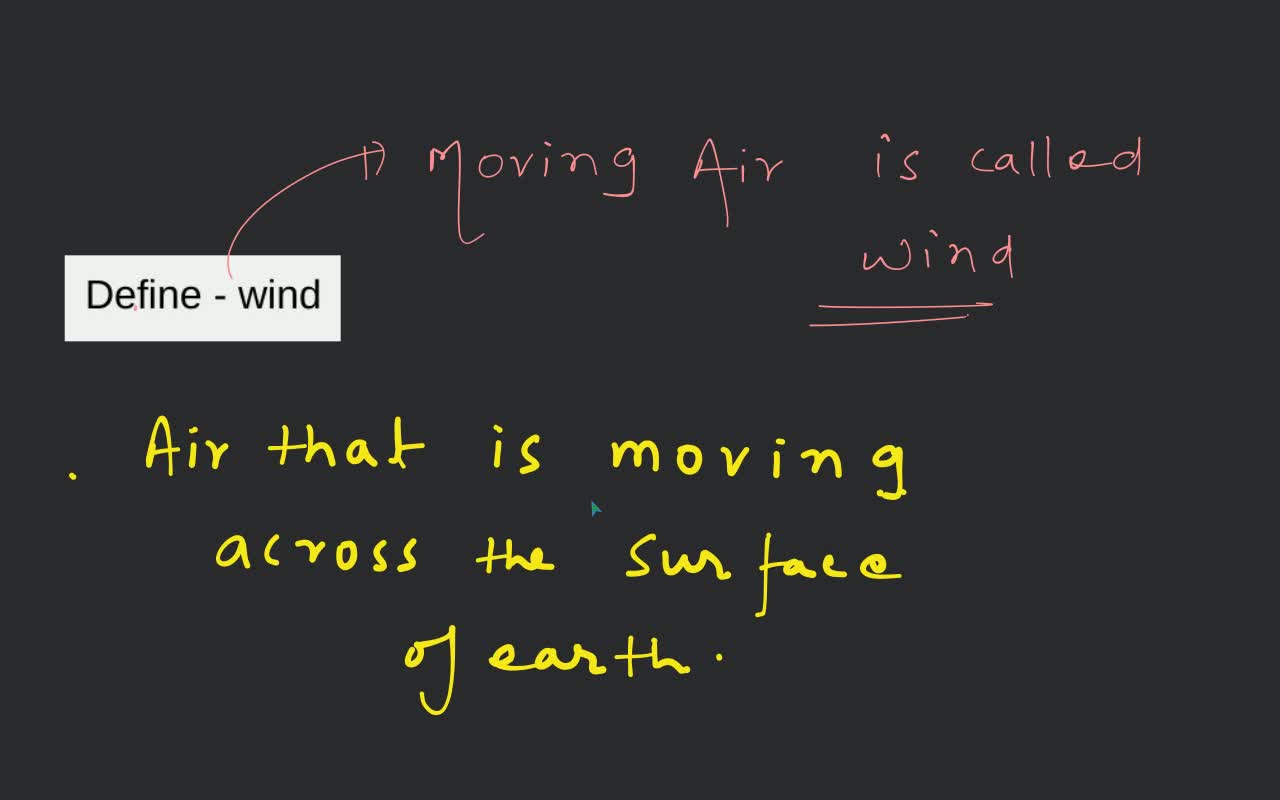 Moving Air is called
wind
Define - wind
Air that is moving
across the surface
of earth.